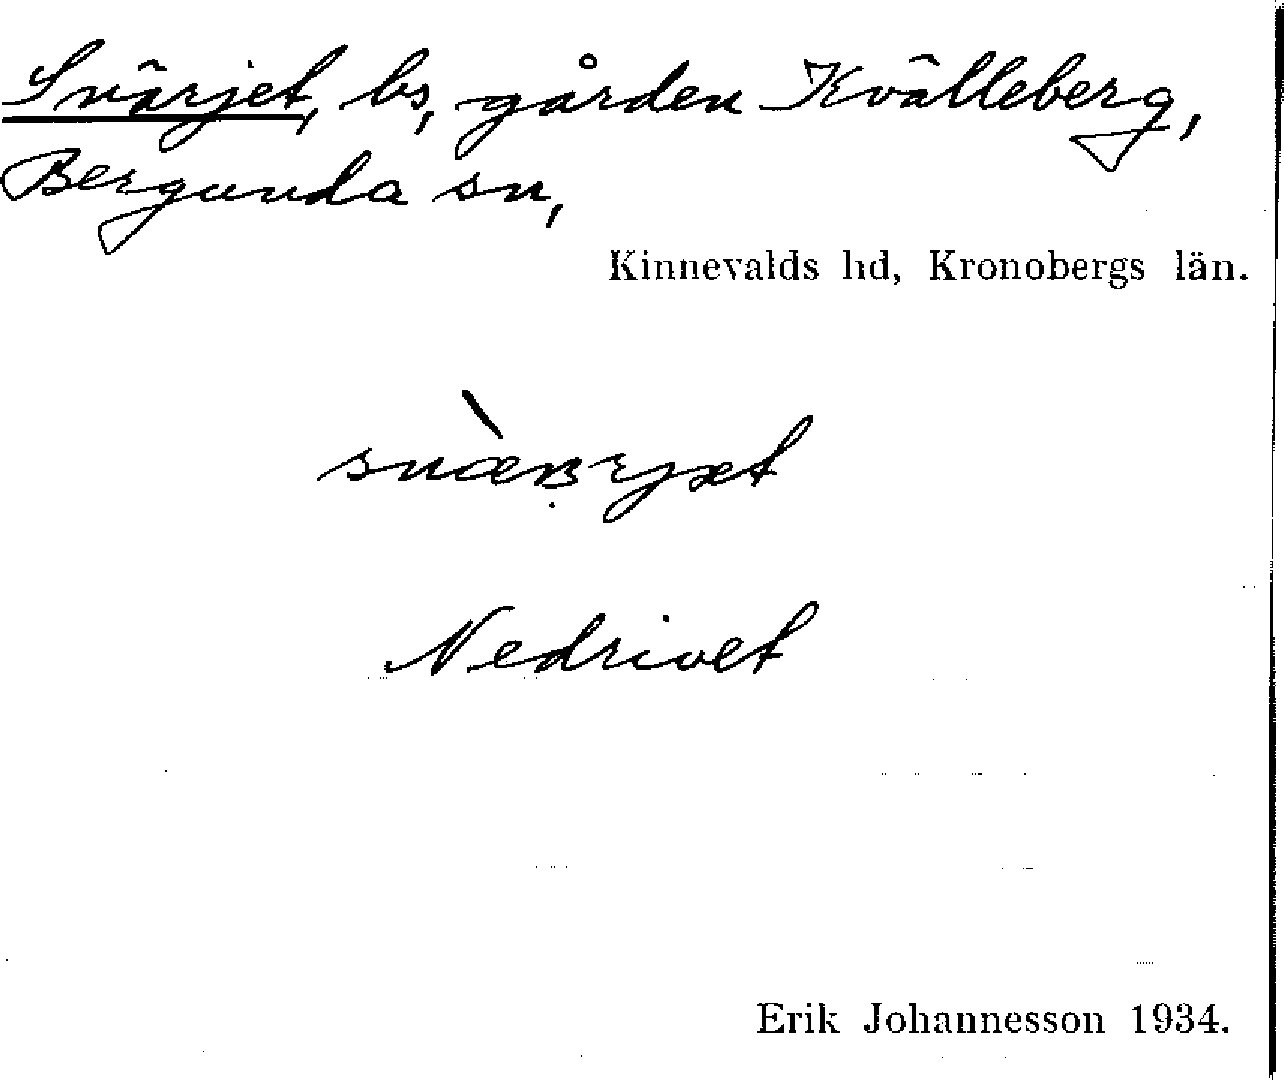 Svärjet, bs, gården Kvälleberg,
Bergunda sn,
Kinnevalds hd, Kronobergs län.
Nedrivet
Erik Johannesson 1934.